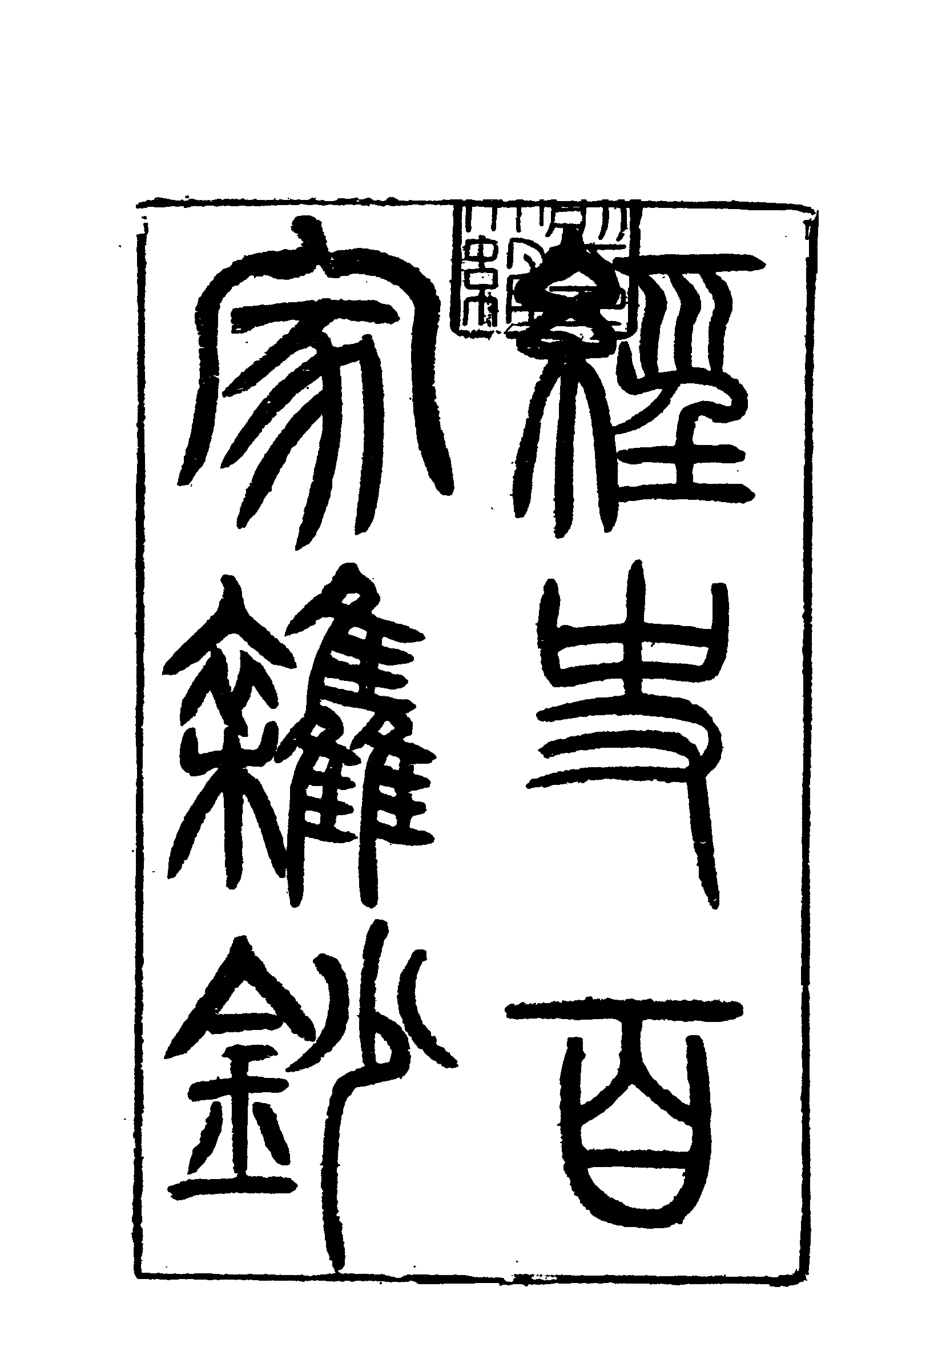 經史百
家雜鈔